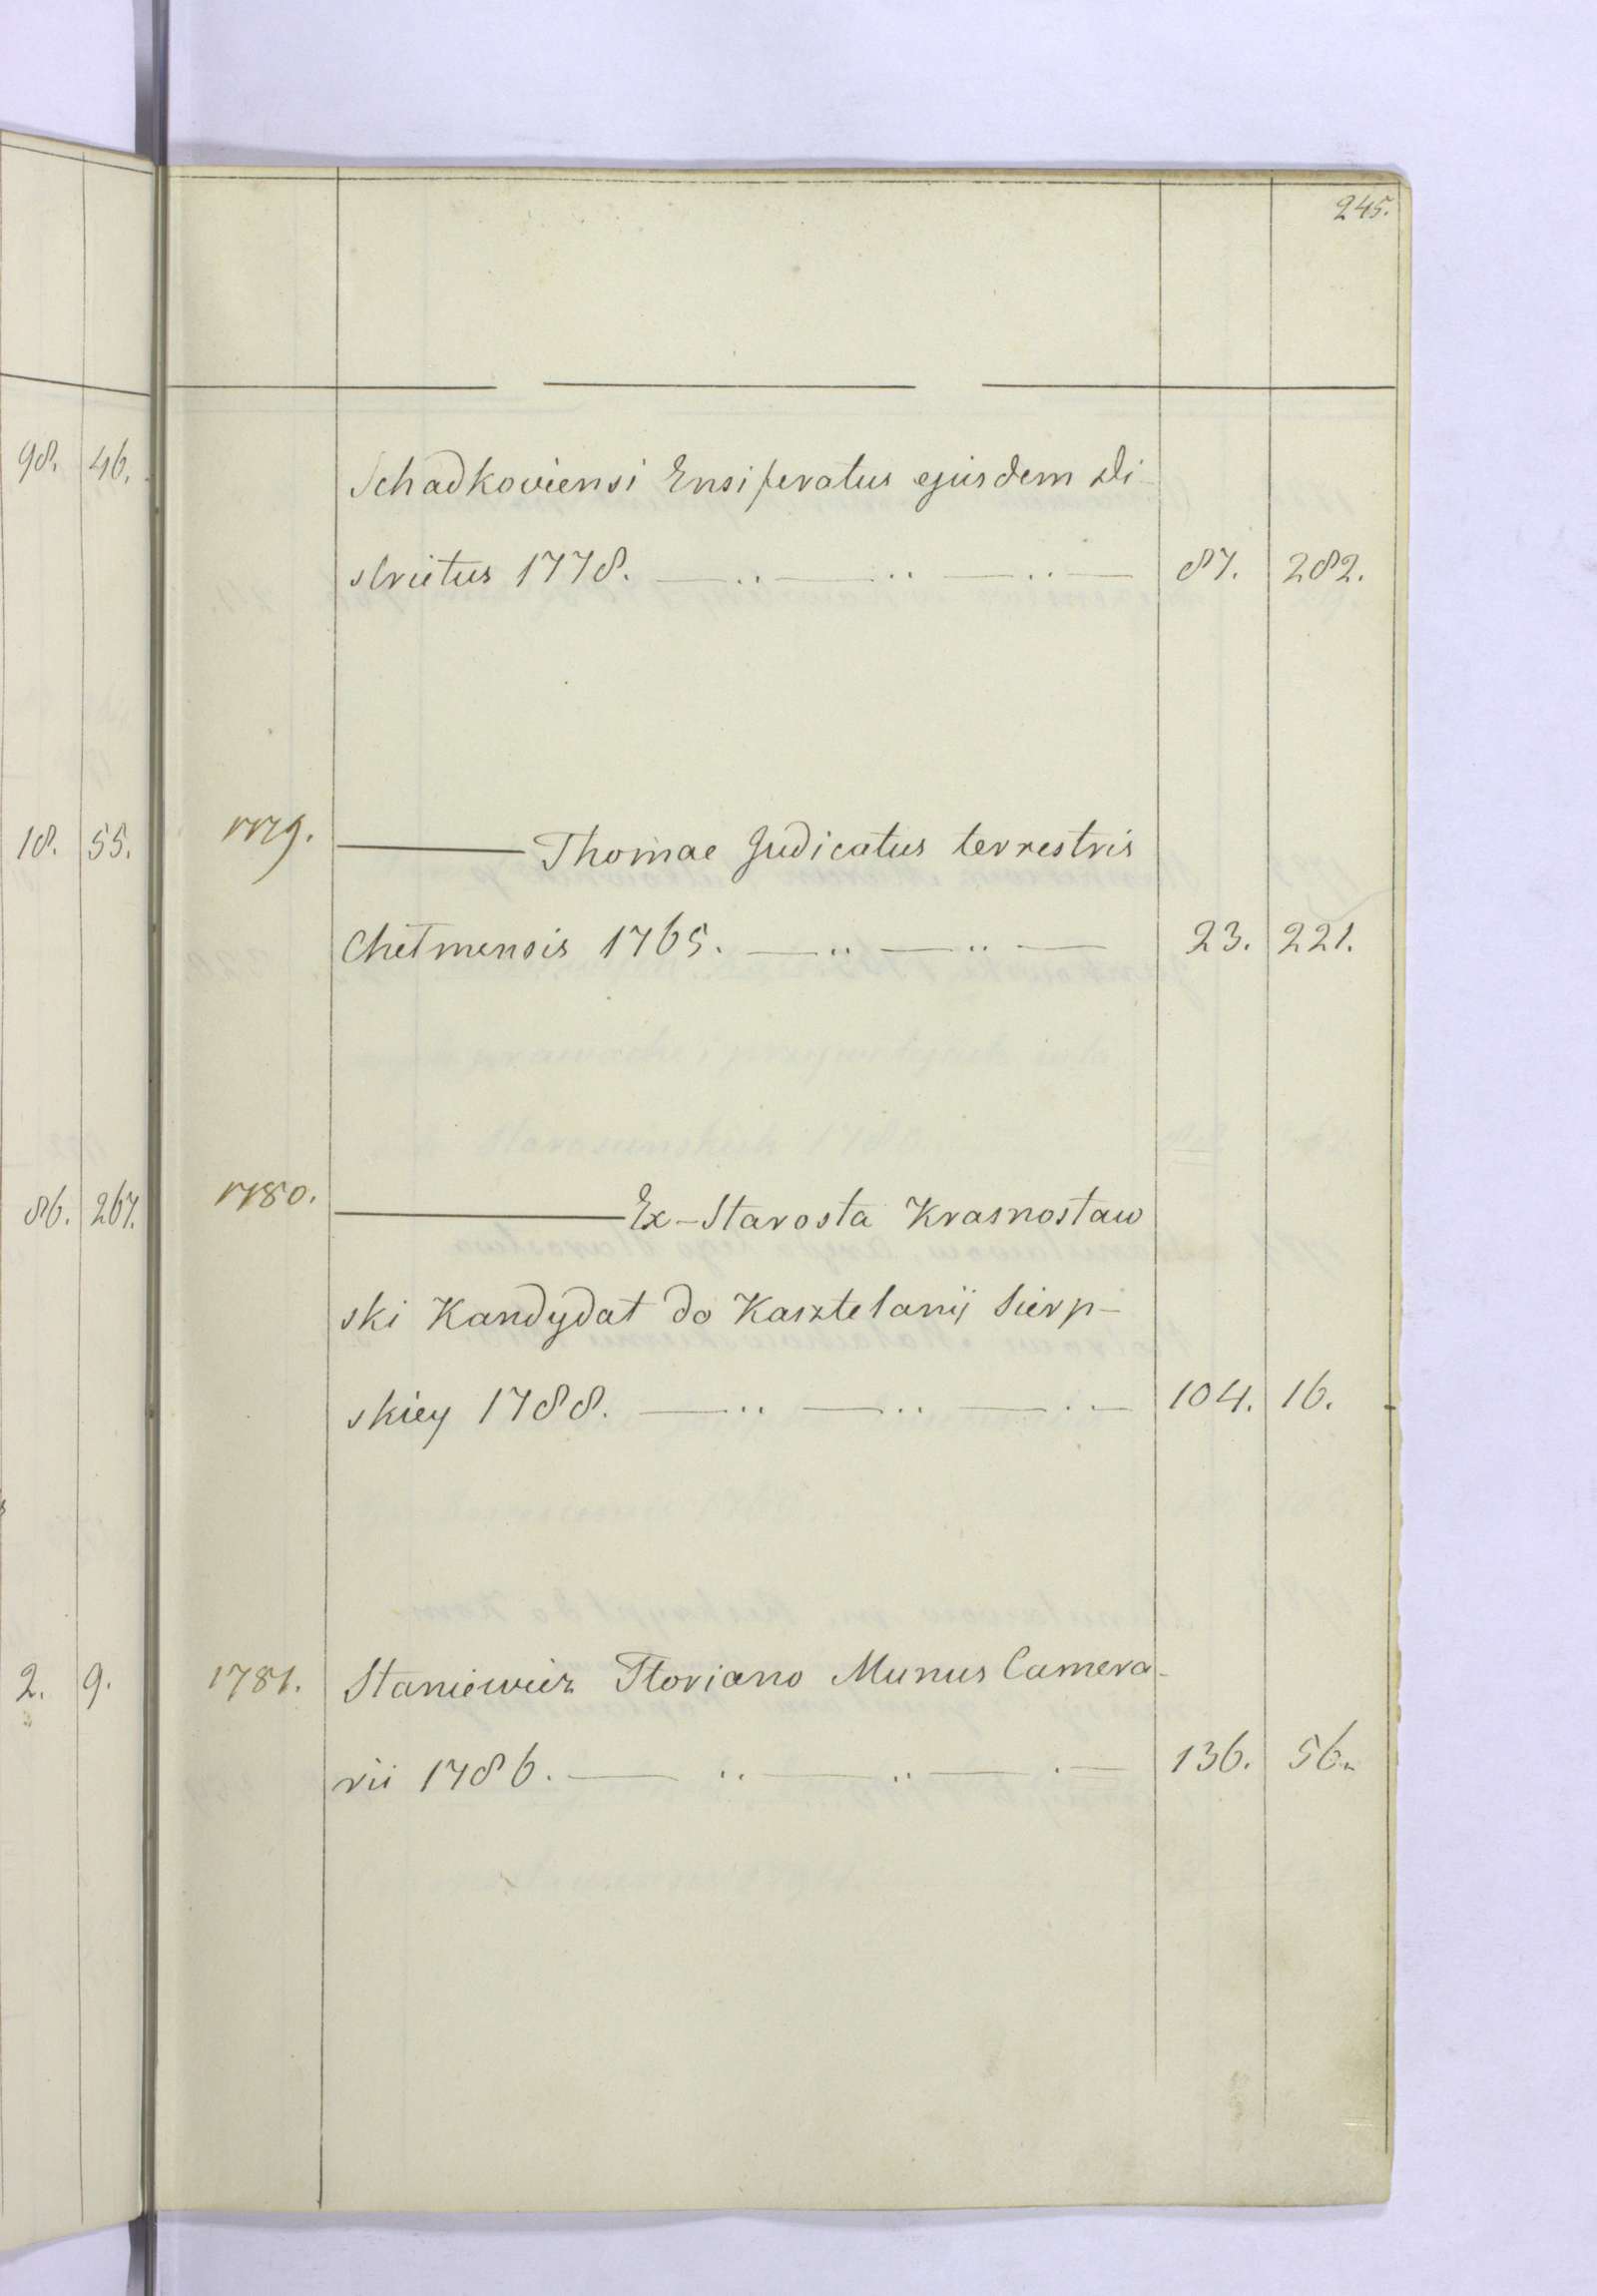 245.
98. 46.
Schadkoviensi Ensiferatus ejusdem Di-
strictus 1778. 87. 282.
18. 55.
1779. Thomae Judicatus terrestris
Chełmensis 1765. 23. 221.
86. 267.
1780. Ex-Starosta Krasnostaw
ski Kandydat do Kasztelanij Sierp-
skiey 1788. 104. 16.
2. 9.
1781. Staniewicz Floriano Munus Camera-
rii 1786. 136. 56.